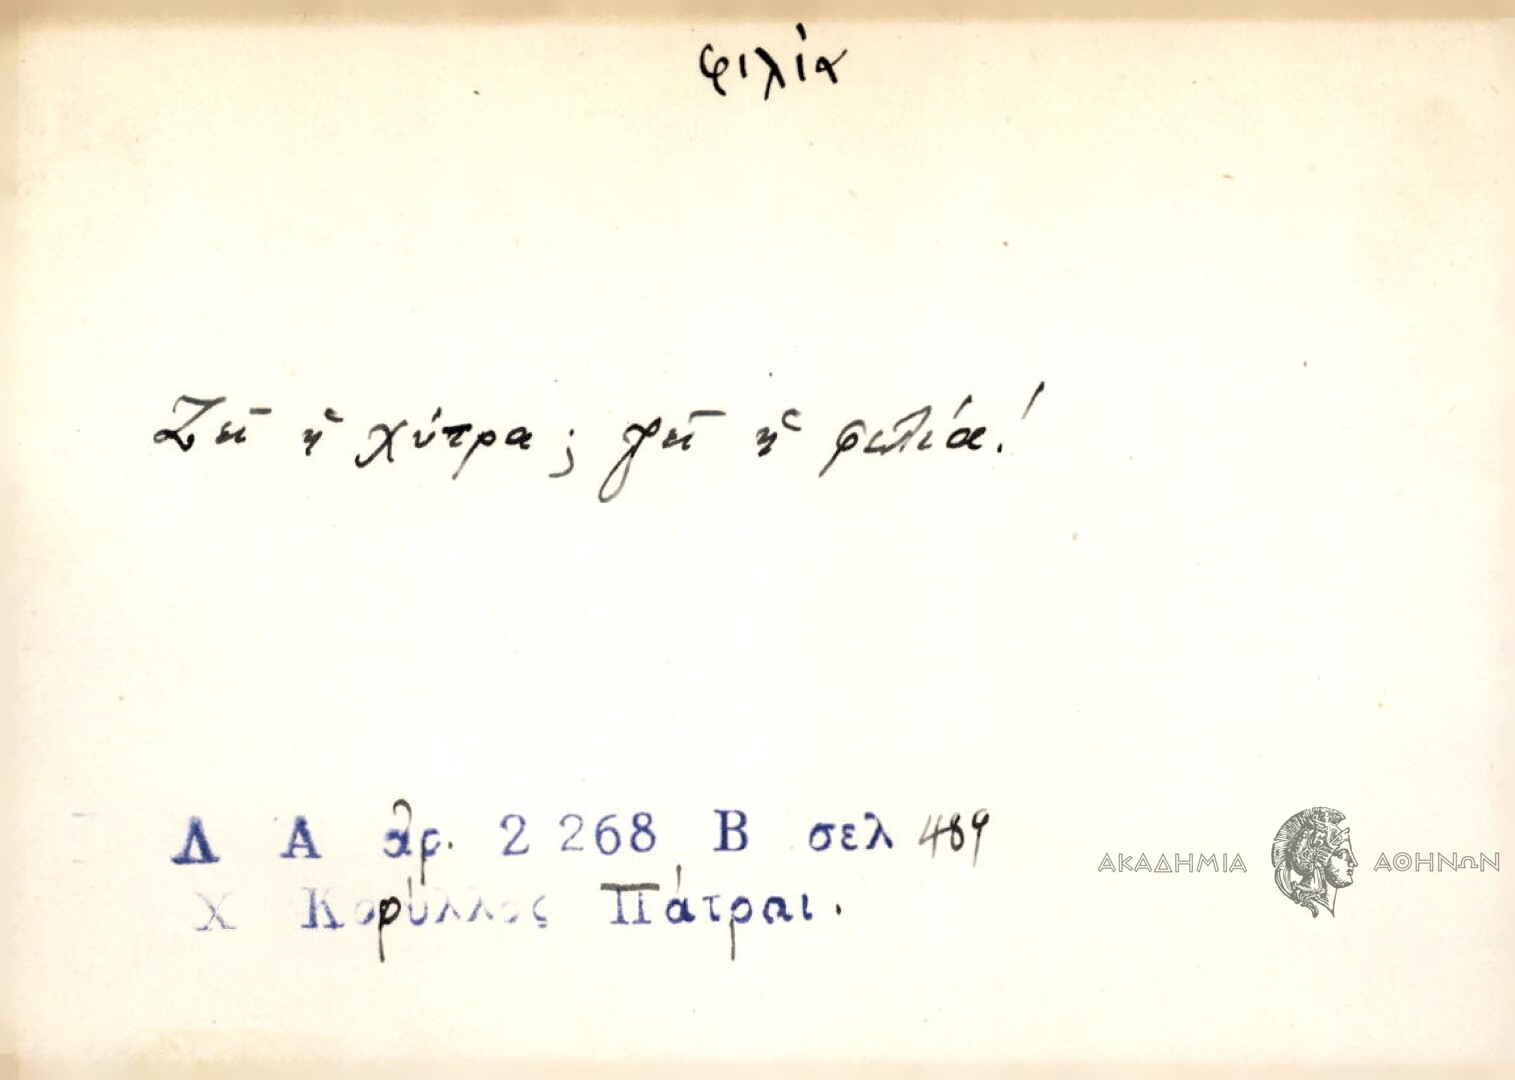 φιλία
Ζεῖ ἡ χύτρα; ζεῖ ἡ φιλία!
Λ Α ἀρ. 2 268 Β σελ 489
Χ Κορύλλος Πάτραι.
ΑΚΑΔΗΜΙΑ ΑΘΗΝΩΝ